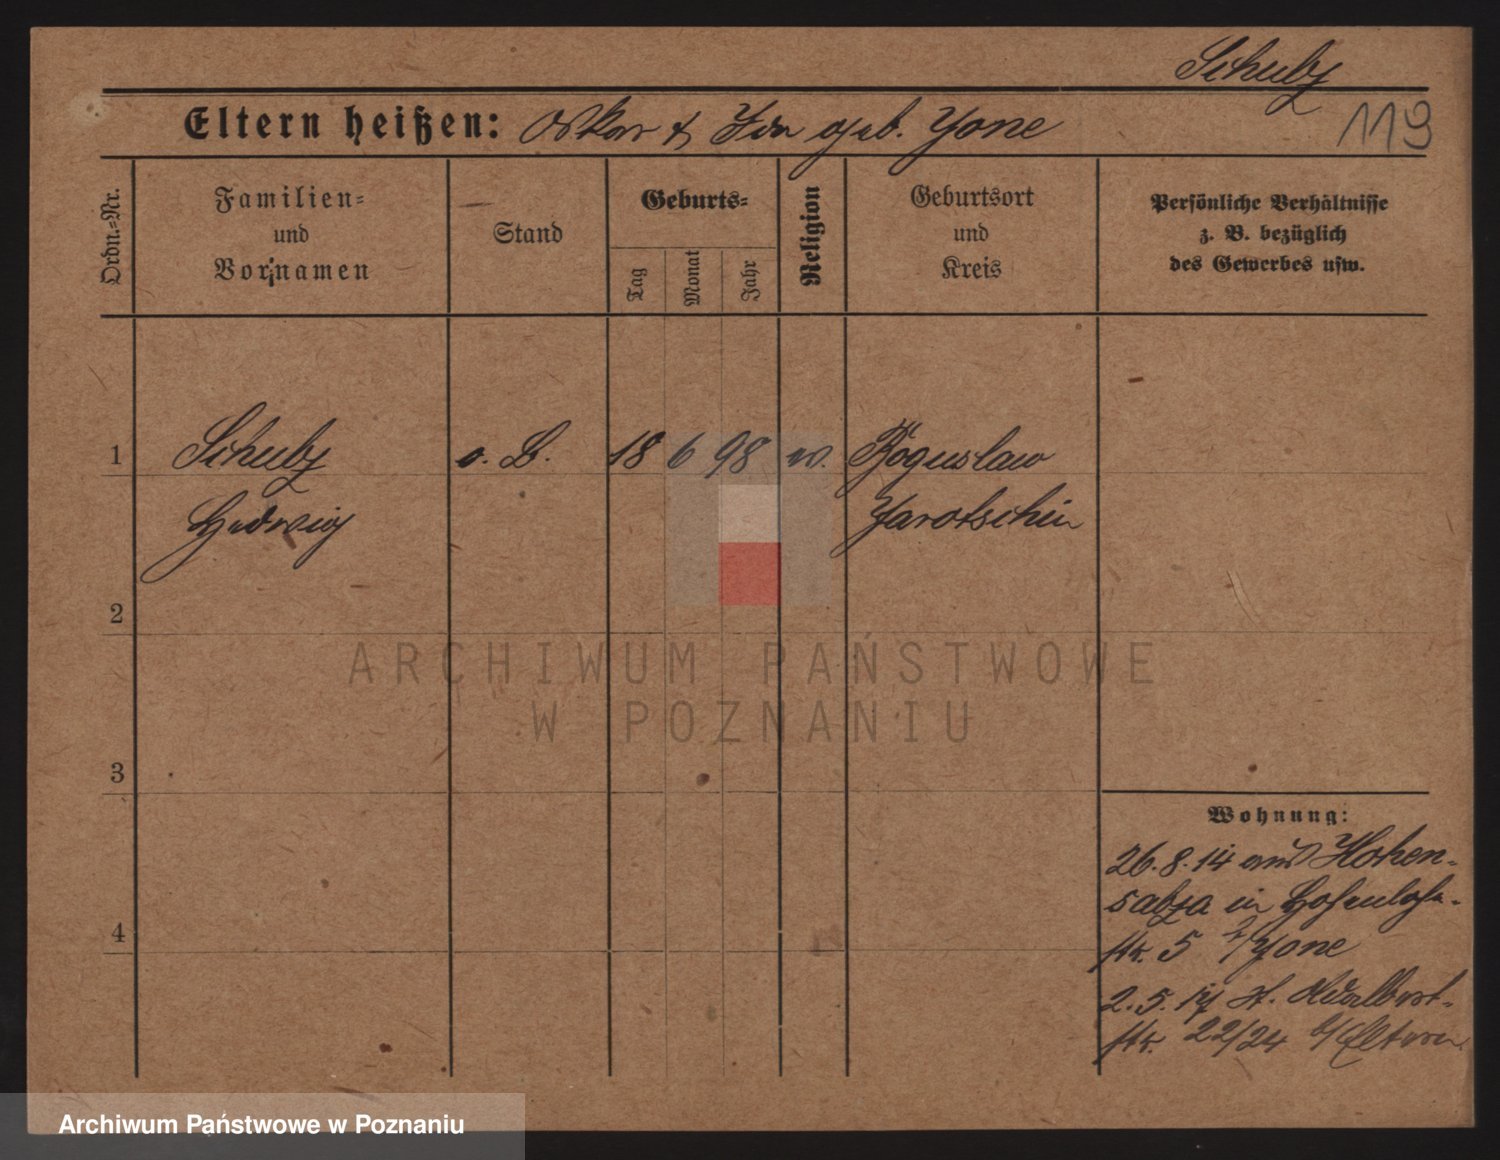 Schulz
119
Eltern heißen: Oskar & Ida geb. Yone
Ordn.-Nr.
Familien-
und
Vornamen
Stand
Geburts-
Tag
Monat
Jahr
Religion
Geburtsort
und
Kreis
Persönliche Verhältnisse
z. B. bezüglich
des Gewerbes usw.
1
Schulz
o. B.
18
6
98
Boguslaw
Hedwig
Jarotschin
2
ARCHIWUM PAŃSTWOWE
W POZNANIU
3
Wohnung:
26.8.14 aus Hohen-
salza in Hohenlohe-
4
str. 5 b/ Yone
2.5.17 St. Adalbert-
str. 22/24 b/ Eltern
Archiwum Państwowe w Poznaniu